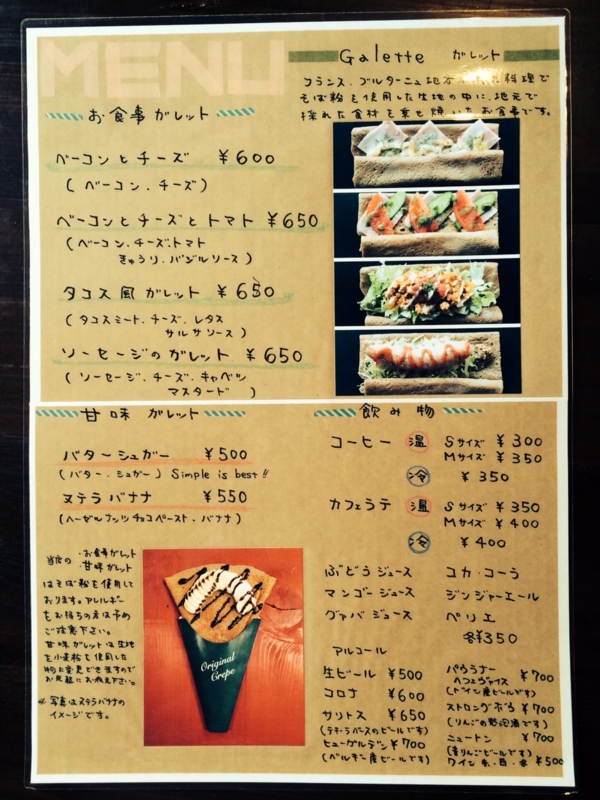 MENU
Galette ガレット
フランス、ブルターニュ地方 料理で
そば粉を使用した生地の中に、地元で
採れた食材を乗せ焼いたお食事です。
お食事ガレット
ベーコンとチーズ ¥600
(ベーコン、チーズ)
ベーコンとチーズとトマト ¥650
(ベーコン、チーズ、トマト
きゅうり、バジルソース)
タコス風ガレット ¥650
(タコスミート、チーズ、レタス
サルサソース)
ソーセージのガレット ¥650
(ソーセージ、チーズ、キャベツ
マスタード)
甘味 ガレット
バターシュガー ¥500
(バター、シュガー) Simple is best!!
ヌテラバナナ ¥550
(ヘーゼルナッツチョコペースト、バナナ)
当店の ・お食事ガレット
・甘味ガレット
はそば粉を使用して
おります。アレルギー
をお持ちの方は予め
ご注意下さい。
甘味ガレットは生地
を小麦粉を使用した
物に変更できますので
お気軽にお申え下さい。
※写真はヌテラバナナの
イメージです。
Original
Crepe
飲み物
コーヒー 温 Sサイズ ¥300
Mサイズ ¥350
冷 ¥350
カフェラテ 温 Sサイズ ¥350
Mサイズ ¥400
冷 ¥400
ぶどうジュース コカ・コーラ
マンゴージュース ジンジャーエール
グァバジュース ペリエ
各¥350
アルコール
生ビール ¥500
コロナ ¥600
サリトス ¥650
(テキーラベースのビールです)
ヒューガルデン ¥700
(ベルギー産ビールです)
パウラナー
ヘフェヴァイス ¥700
(ドイツ産ビールです)
ストロングボウ ¥700
(りんごの発泡酒です)
ニュートン ¥700
(青りんごビールです)
ワイン 赤・白・ ¥500